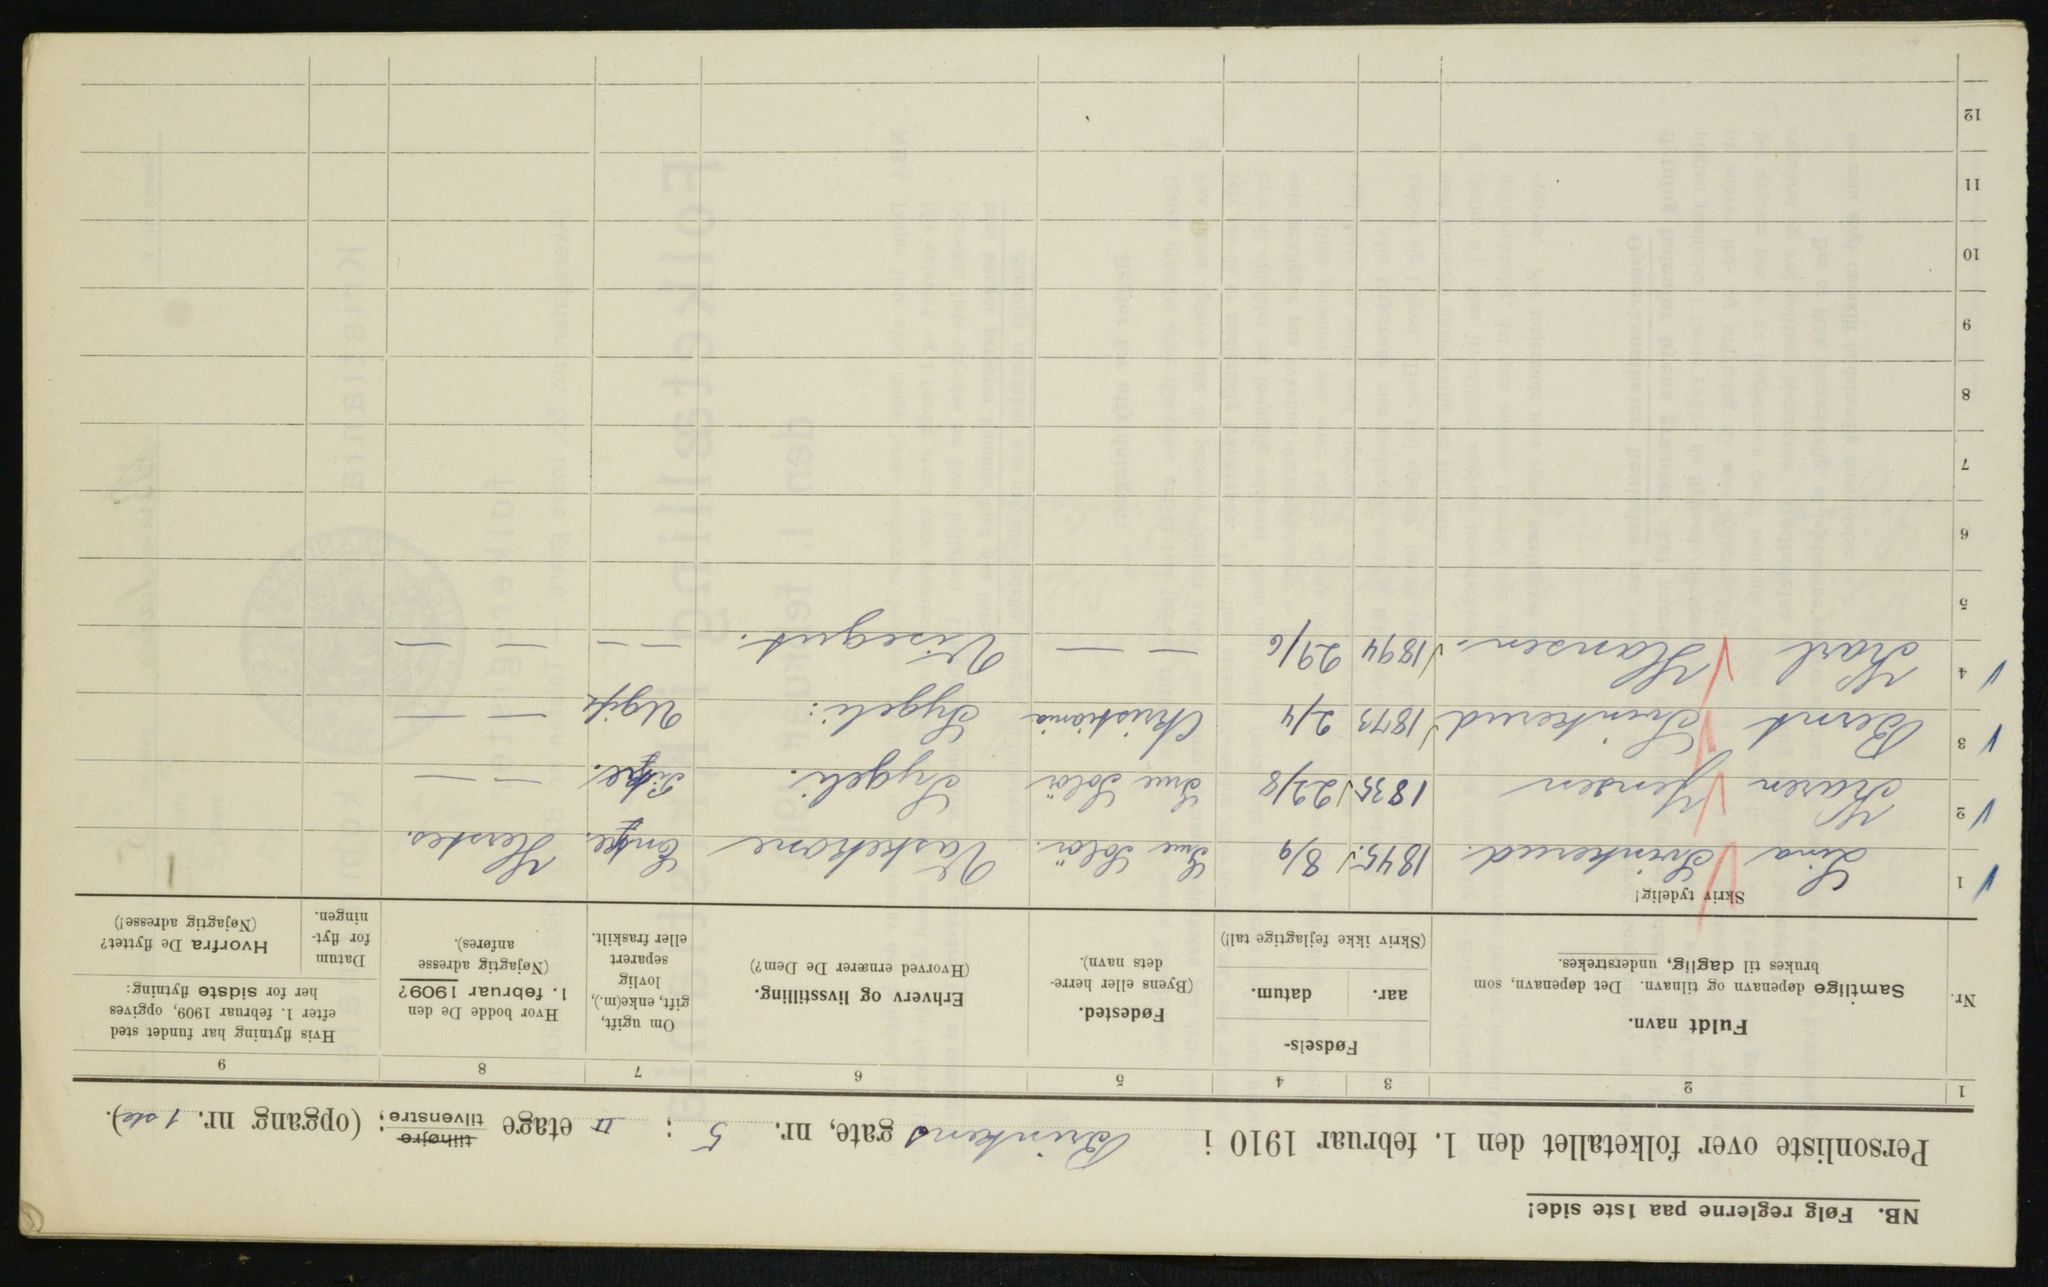 NB. Følg reglerne paa 1ste side!
Personliste over folketallet den 1. februar 1910 i Brinkens gate, nr. 5; II etage tilhøjre tilvenstre; (opgang nr. 1ste).
1 2 3 4 5 6 7 8 9
Nr.
Fuldt navn.
Samtlige døpenavn og tilnavn. Det døpenavn, som
brukes til daglig, understrekes.
Skriv tydelig!
Fødsels-
aar. datum.
(Skriv ikke fejlagtige tal!)
Fødested.
(Byens eller herre-
dets navn).
Erhverv og livsstilling.
(Hvorved ernærer De Dem?)
Om ugift,
gift, enke(m.),
lovlig
separert
eller fraskilt.
Hvor bodde De den
1. februar 1909?
(Nøjagtig adresse
anføres).
Hvis flytning har fundet sted
efter 1. februar 1909, opgives
her for sidste flytning:
Datum
for flyt-
ningen.
Hvorfra De flyttet?
(Nøjagtig adresse!)
1 Lina Svinkerud. 1845 8/9 Grue Solör. Vaskekone Enke. Herstes.
2 Karen Jensen 1835 22/8 Grue Solör Sygeli. — —
3 Bernt Svinkerud 1873 2/4 Christiania Sygeli: Ugift — —
4 Karl Hansen. 1894 29/6 — — Visergut. — — — —
5
6
7
8
9
10
11
12